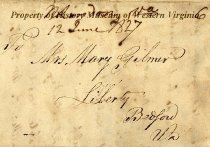 Property of History Museum of Western Virginia
12 June 1827
To
Mrs. Mary Gilmer
Liberty
Bedford
Va